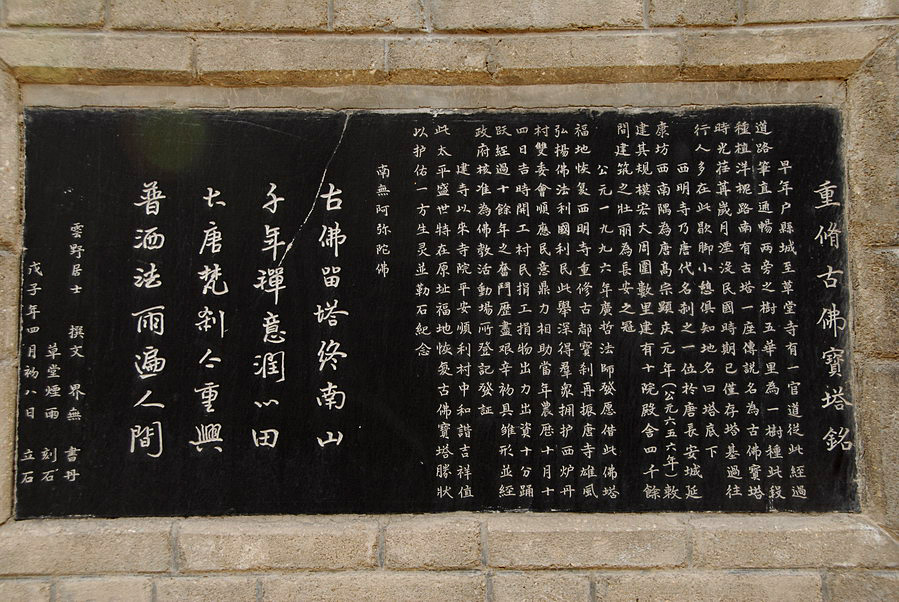 重脩古佛寶塔銘
早年户縣城至草堂寺有一官道從此經過
道路筆直通暢兩旁之樹五華里為一樹種此段
種植洋槐路南有古塔一座傳説名為古佛寶塔
時光荏苒歲月湮没民國時期已僅存塔基過往
行人多在此歇脚小憩俱知地名曰塔底下
西明寺乃唐代名刹之一位於唐長安城延
康坊西南隅為唐高宗顯庆元年（公元六五六年）敕
建其規模宏大周圍數里建有十院殿舍四千餘
間建筑之壯丽為長安之冠
公元一九九六年廣哲法師發愿借此佛塔
福地恢复西明寺重修古都寳利再振唐寺雄風
弘揚佛法利國利民此舉深得羣家拥护西炉丹
村雙委會順應民意鼎力相助當年農历十月十
四日吉時開工村民捐工捐物出力出資十分踴
跃經過十餘年之奮鬥歷盡艰辛初具雏形並經
政府核准為佛教活動場所登記發証
建寺以来寺院平安順利村中和諧吉祥值
此太平盛世特在原址福地恢复古佛寶塔勝狀
以护佑一方生灵並勒石紀念
南無阿弥陀佛
古佛留塔終南山
千年禪意潤心田
大唐梵刹今重興
普洒法雨遍人間
雲野居士 撰文 界無 書丹
草堂煙雨 刻石
戊子年四月初八日 立石